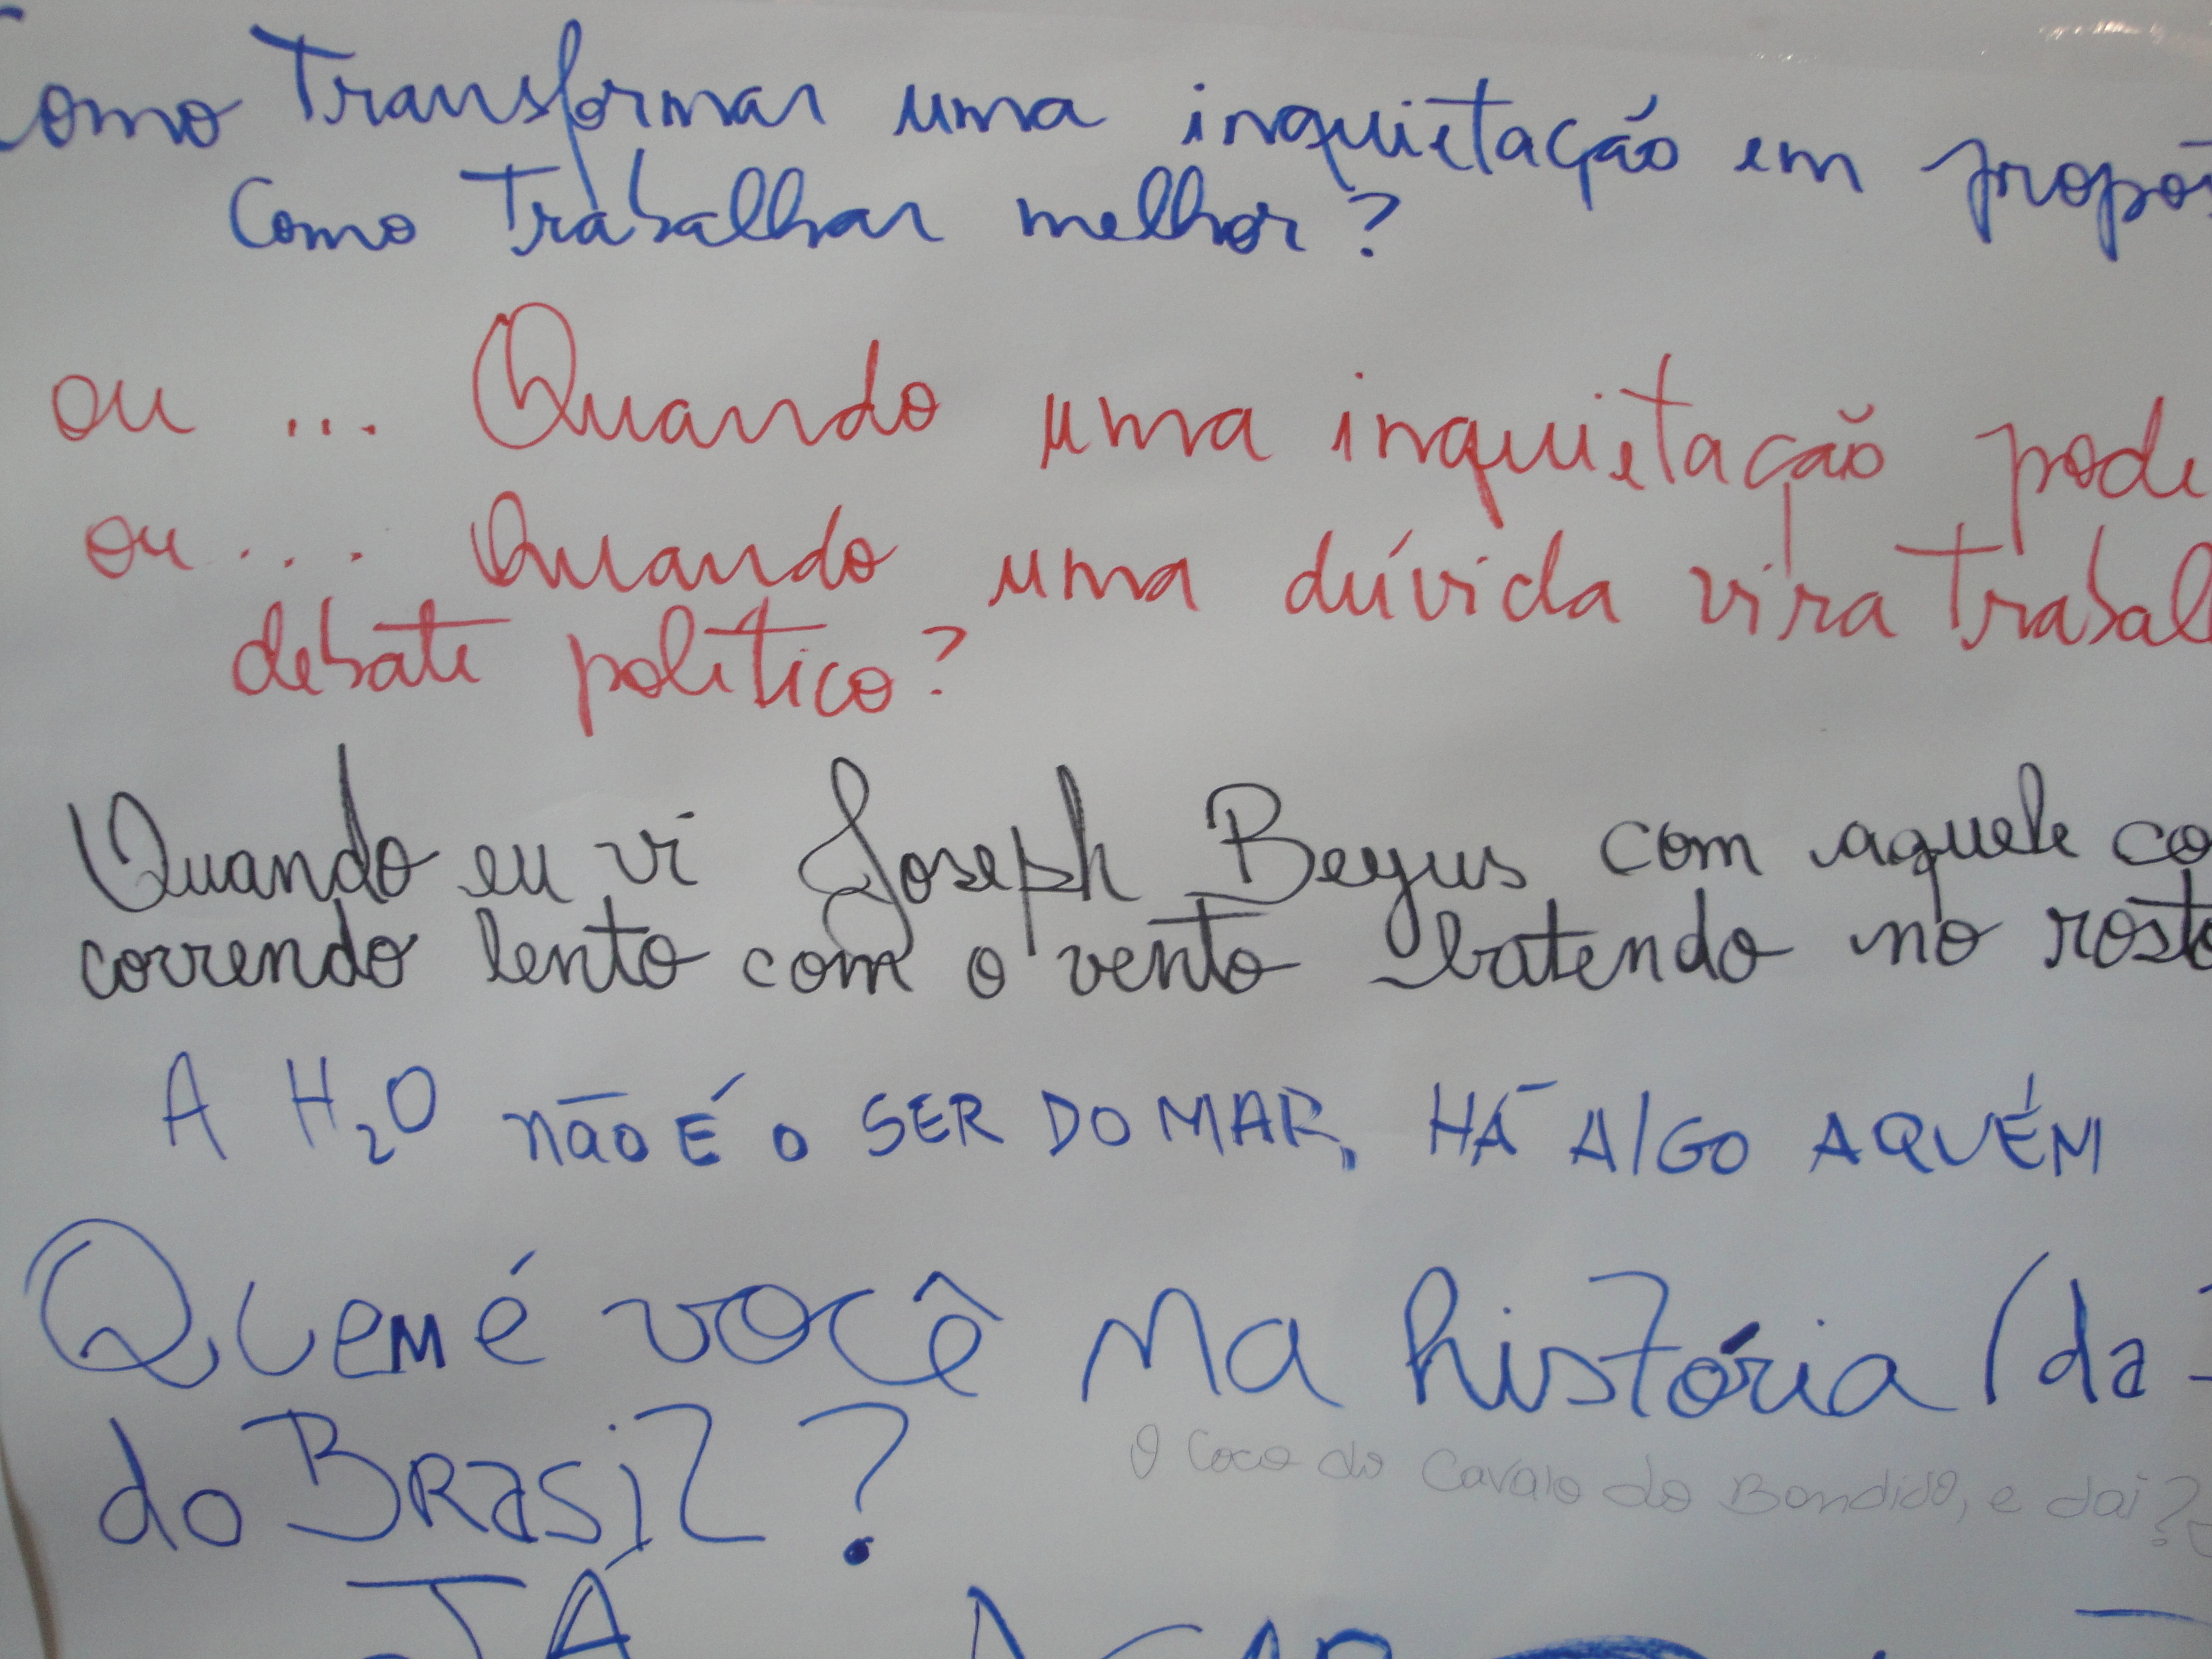 Como Transformar uma inquietação em propó
Como Trabalhar melhor?
ou ... Quando uma inquietação pode
ou ... Quando uma dúvida vira Trabal
debate político?
Quando eu vi Joseph Beyus com aquele co
correndo lento com o vento batendo no rosto
A H₂O não É o SER DO MAR, HÁ AlGO AQUÉM
Quem é você na história (da
do BRasil?
O Coco do Cavalo do Bandido, e dai?
JÁ